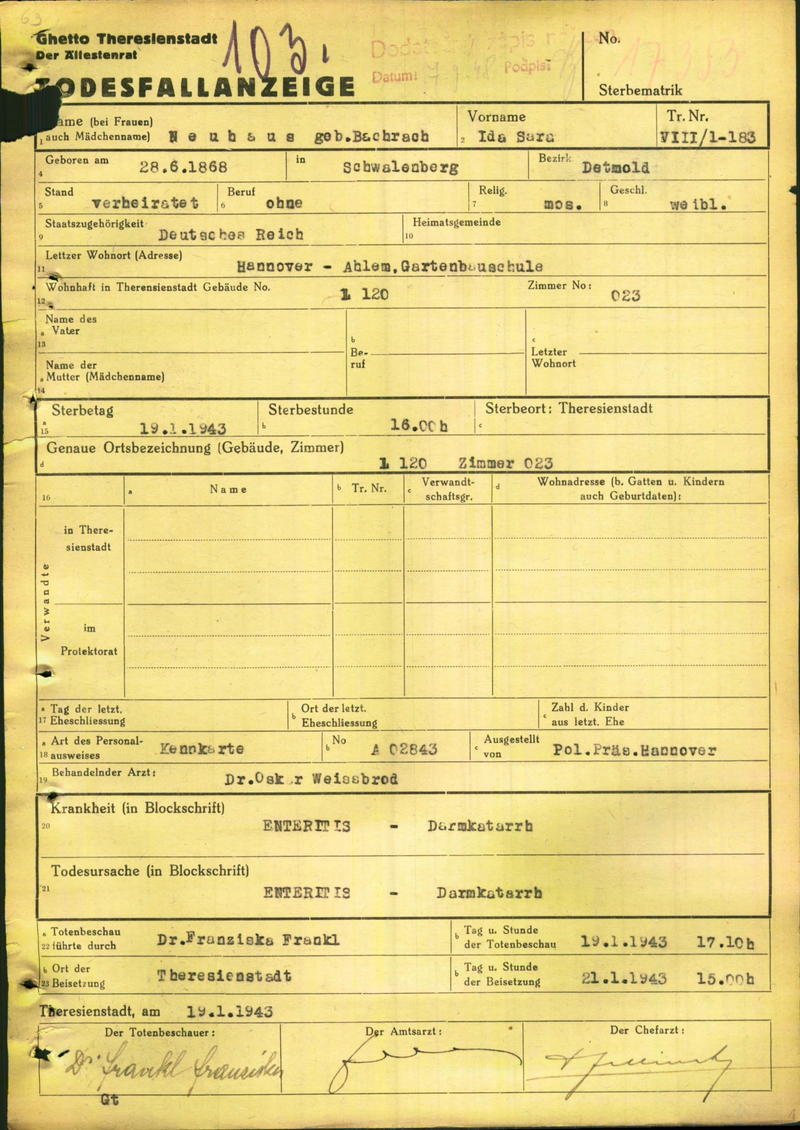 63
Ghetto Theresienstadt
Der Ältestenrat
103
TODESFALLANZEIGE
Datum:
Podpis:
No.
Sterbematrik
Name (bei Frauen)
1 auch Mädchenname) Neuhaus geb.Bachrach
Vorname
2 Ida Sara
Tr. Nr.
VIII/1-183
Geboren am
4 28.6.1868
in Schwalenberg
Bezirk Detmold
Stand
5 verheiratet
Beruf
6 ohne
Relig.
7 mos.
Geschl.
8 weibl.
Staatszugehörigkeit
9 Deutsches Reich
Heimatsgemeinde
10
Lettzer Wohnort (Adresse)
11 Hannover - Ahlem,Gartenbauschule
Wohnhaft in Theresienstadt Gebäude No.
12 L 120
Zimmer No: 023
Name des
a Vater
13
Name der
a Mutter (Mädchenname)
14
b
Be-
ruf
c
Letzter
Wohnort
Sterbetag
a
15 19.1.1943
Sterbestunde
b 16.00h
Sterbeort: Theresienstadt
c
Genaue Ortsbezeichnung (Gebäude, Zimmer)
d L 120 Zimmer 023
16 a Name
b Tr. Nr.
c Verwandt-
schaftsgr.
d Wohnadresse (b. Gatten u. Kindern
auch Geburtdaten):
Verwandte
in There-
sienstadt
im
Protektorat
a Tag der letzt.
17 Eheschliessung
b Ort der letzt.
Eheschliessung
c Zahl d. Kinder
aus letzt. Ehe
a Art des Personal-
18 ausweises Kennkarte
b No A 02843
c Ausgestellt
von Pol.Präs.Hannover
Behandelnder Arzt:
19 Dr.Oskar Weissbrod
Krankheit (in Blockschrift)
20 ENTERITIS - Darmkatarrh
Todesursache (in Blockschrift)
21 ENTERITIS - Darmkatarrh
a Totenbeschau
22 führte durch Dr.Franziska Frankl
b Tag u. Stunde
der Totenbeschau 19.1.1943 17.10h
b Ort der
23 Beisetzung Theresienstadt
b Tag u. Stunde
der Beisetzung 21.1.1943 15.00h
Theresienstadt, am 19.1.1943
Der Totenbeschauer:
Der Amtsarzt:
Der Chefarzt:
Dr Frankl Franziska
Gt